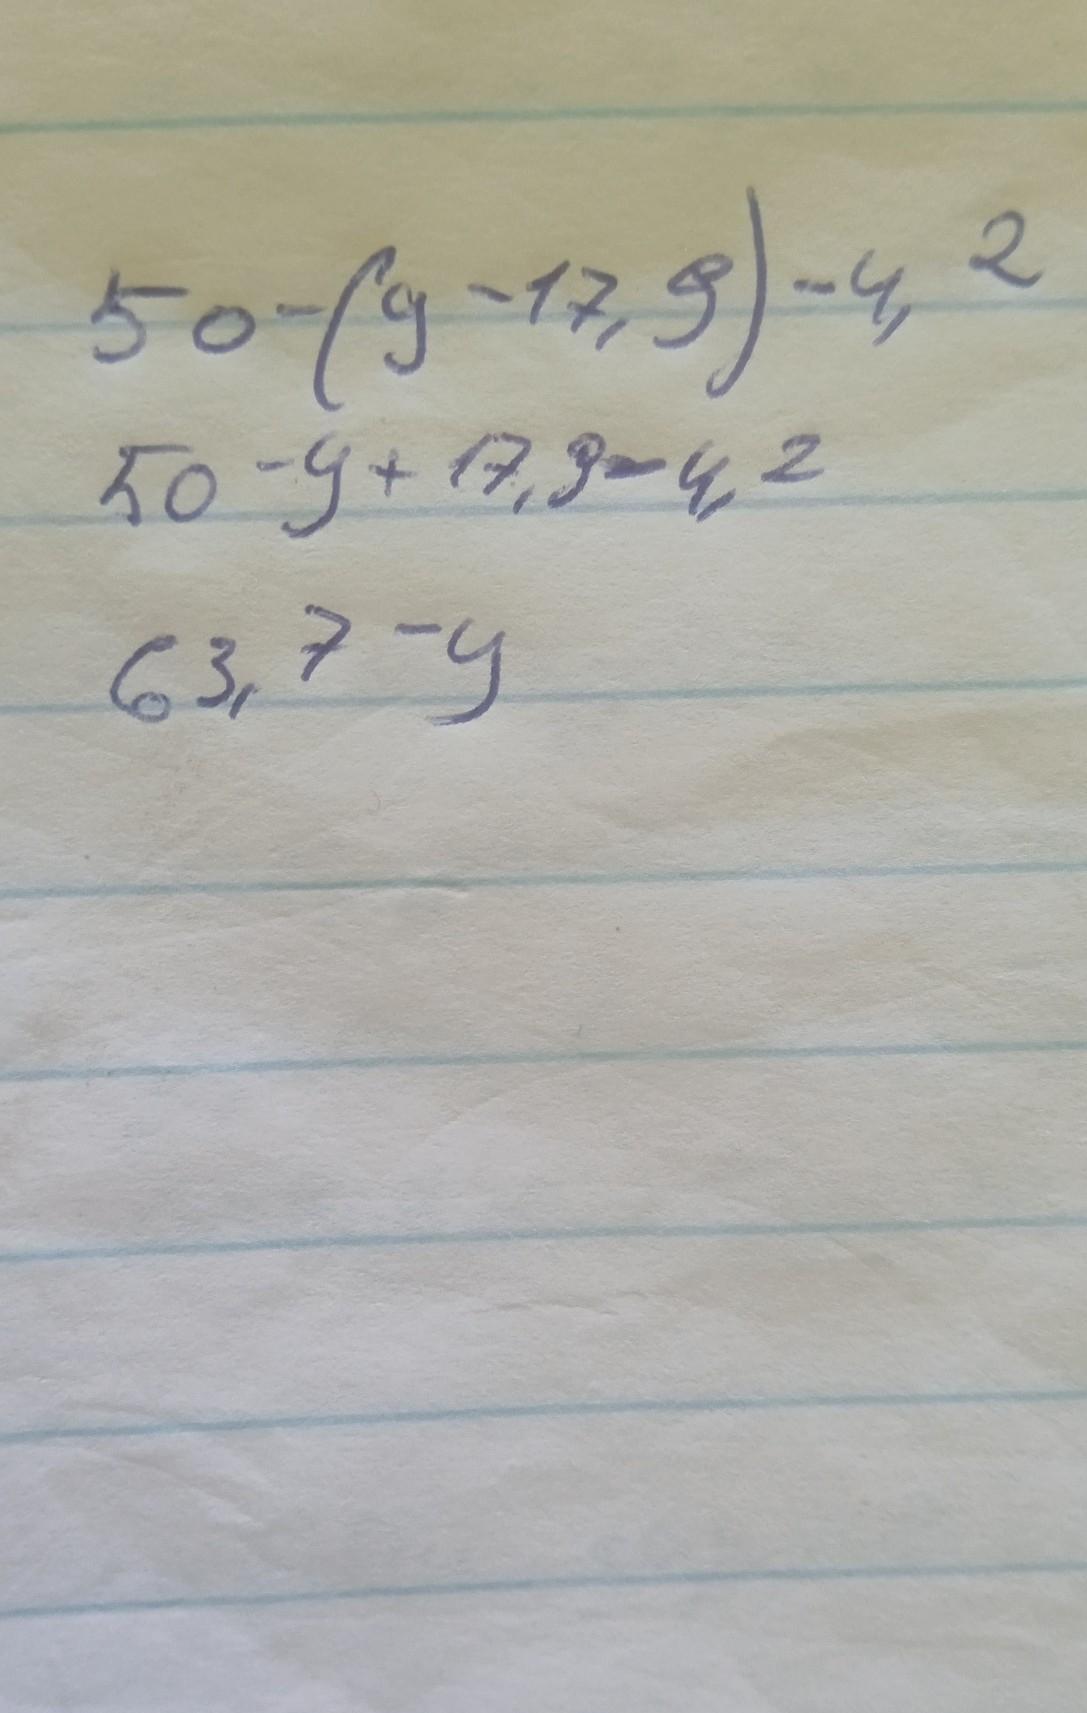 50-(y-17,9)-4,2
50-y+17,9-4,2
63,7-y